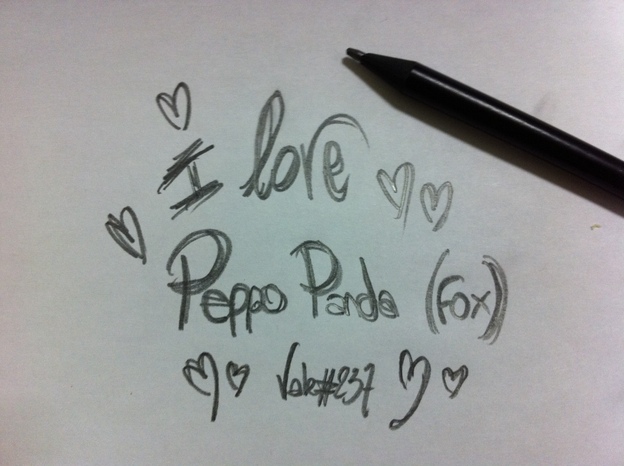 I love
Peppo Panda (Fox)
Vale#237